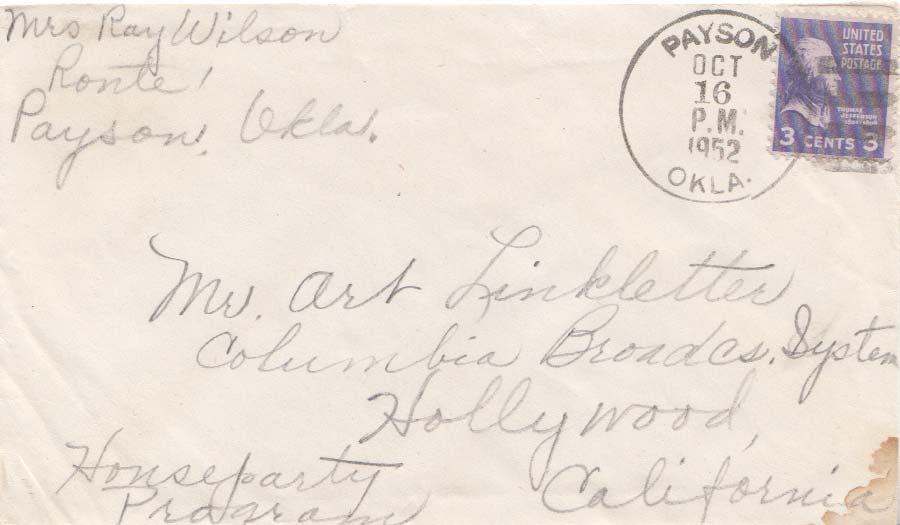 Mrs Ray Wilson
Route 1
Payson, Okla.
PAYSON
OCT
16
P.M.
1952
OKLA.
UNITED
STATES
POSTAGE
THOMAS
JEFFERSON
3 CENTS 3
Mr. Art Linkletter
Columbia Broadcs. System
Hollywood,
California
Houseparty
Program